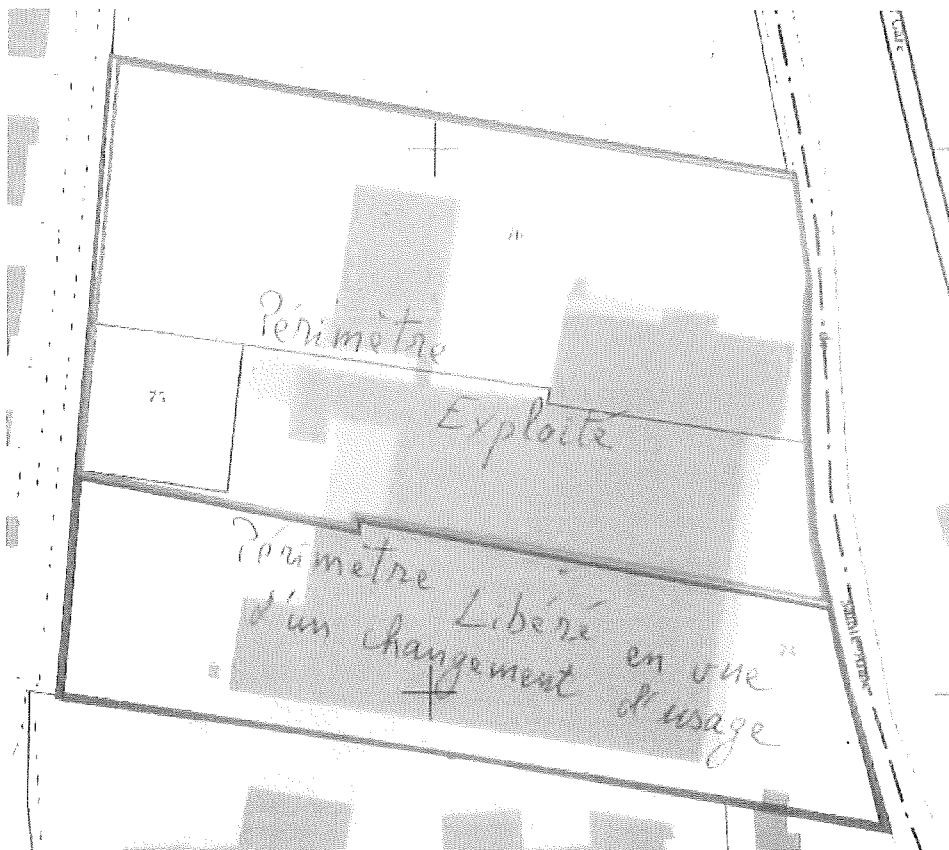 Périmètre
Exploité
75
Périmètre Libéré en vue
d'un changement d'usage